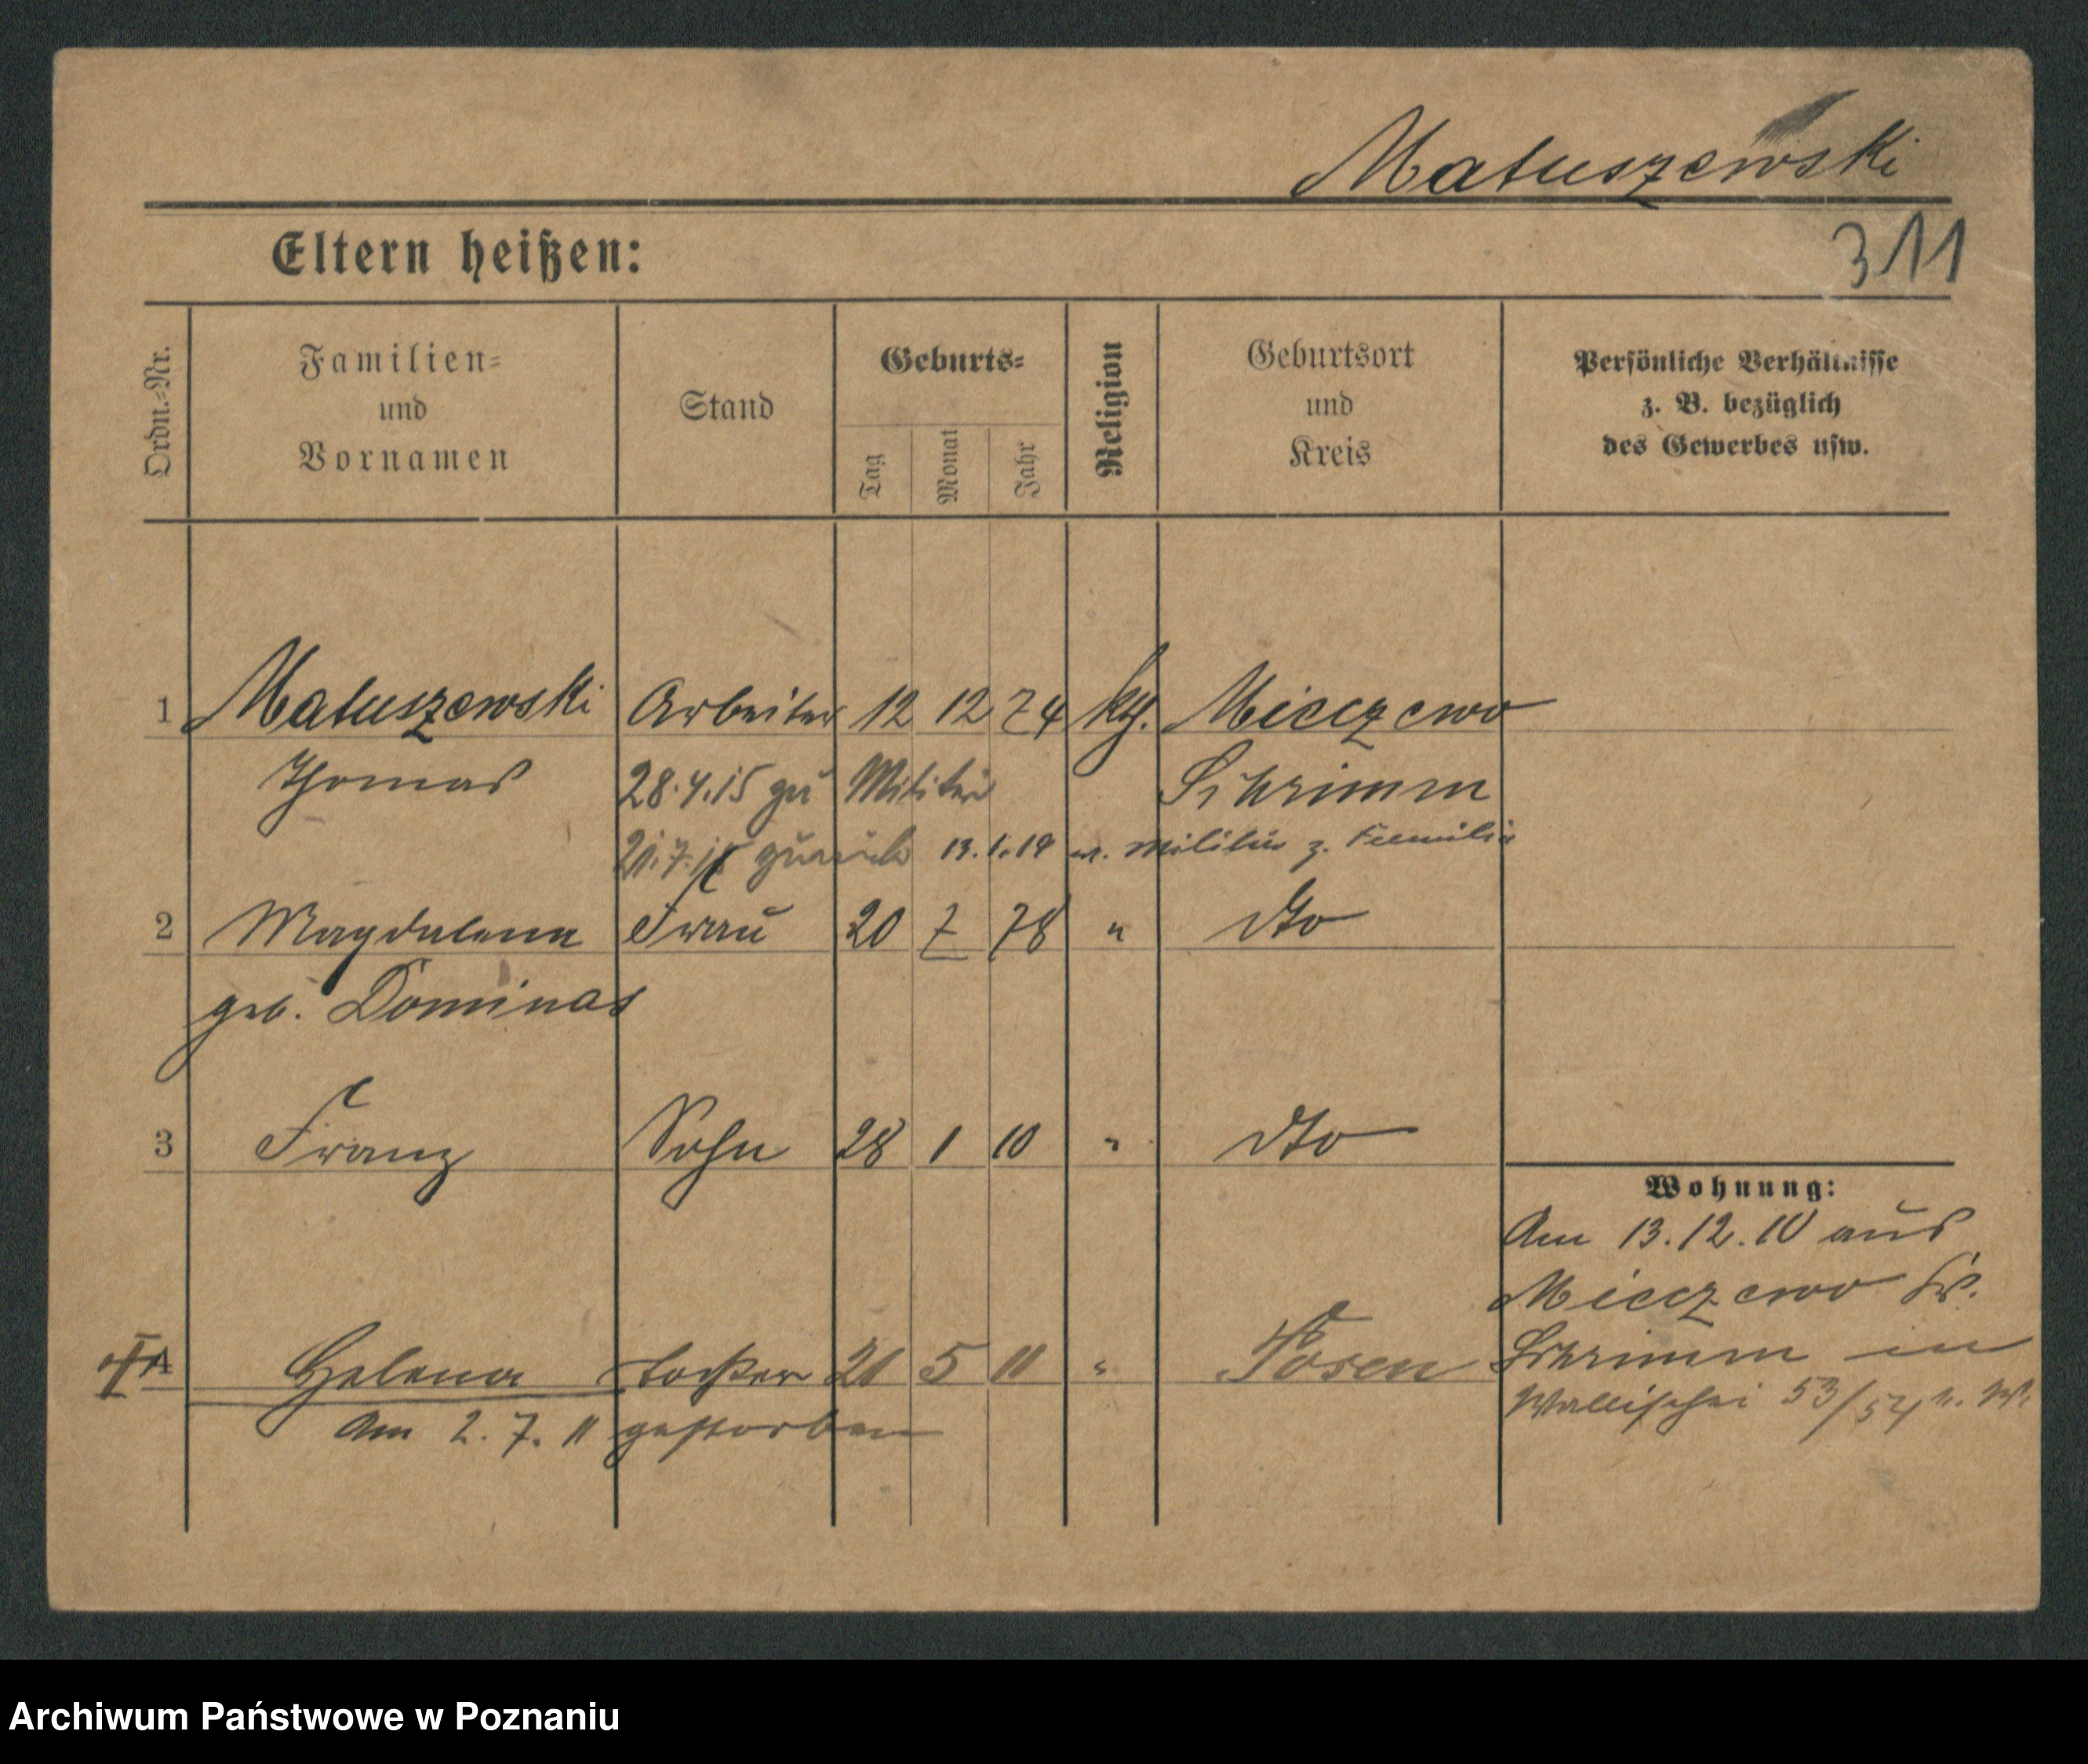 Matuszewski
Eltern heißen:
311
Ordn.-Nr.
Familien-
und
Vornamen
Stand
Geburts-
Tag
Monat
Jahr
Religion
Geburtsort
und
Kreis
Persönliche Verhältnisse
z. B. bezüglich
des Gewerbes usw.
1 Matuszewski Arbeiter 12 12 74 kth. Mieczewo
Thomas 28.4.15 zu Militär Schrimm
21.7.15 zurück 13.1.19 v. Militär z. Familie
2 Magdalena Frau 20 7 78 " dto
geb. Dominas
3 Franz Sohn 28 1 10 " dto
4 Helena Tochter 21 5 11 " Posen
Am 2. 7. 11 gestorben
Wohnung:
Am 13.12.10 aus
Mieczewo Kr.
Schrimm in
Wallischei 53/54
Archiwum Państwowe w Poznaniu